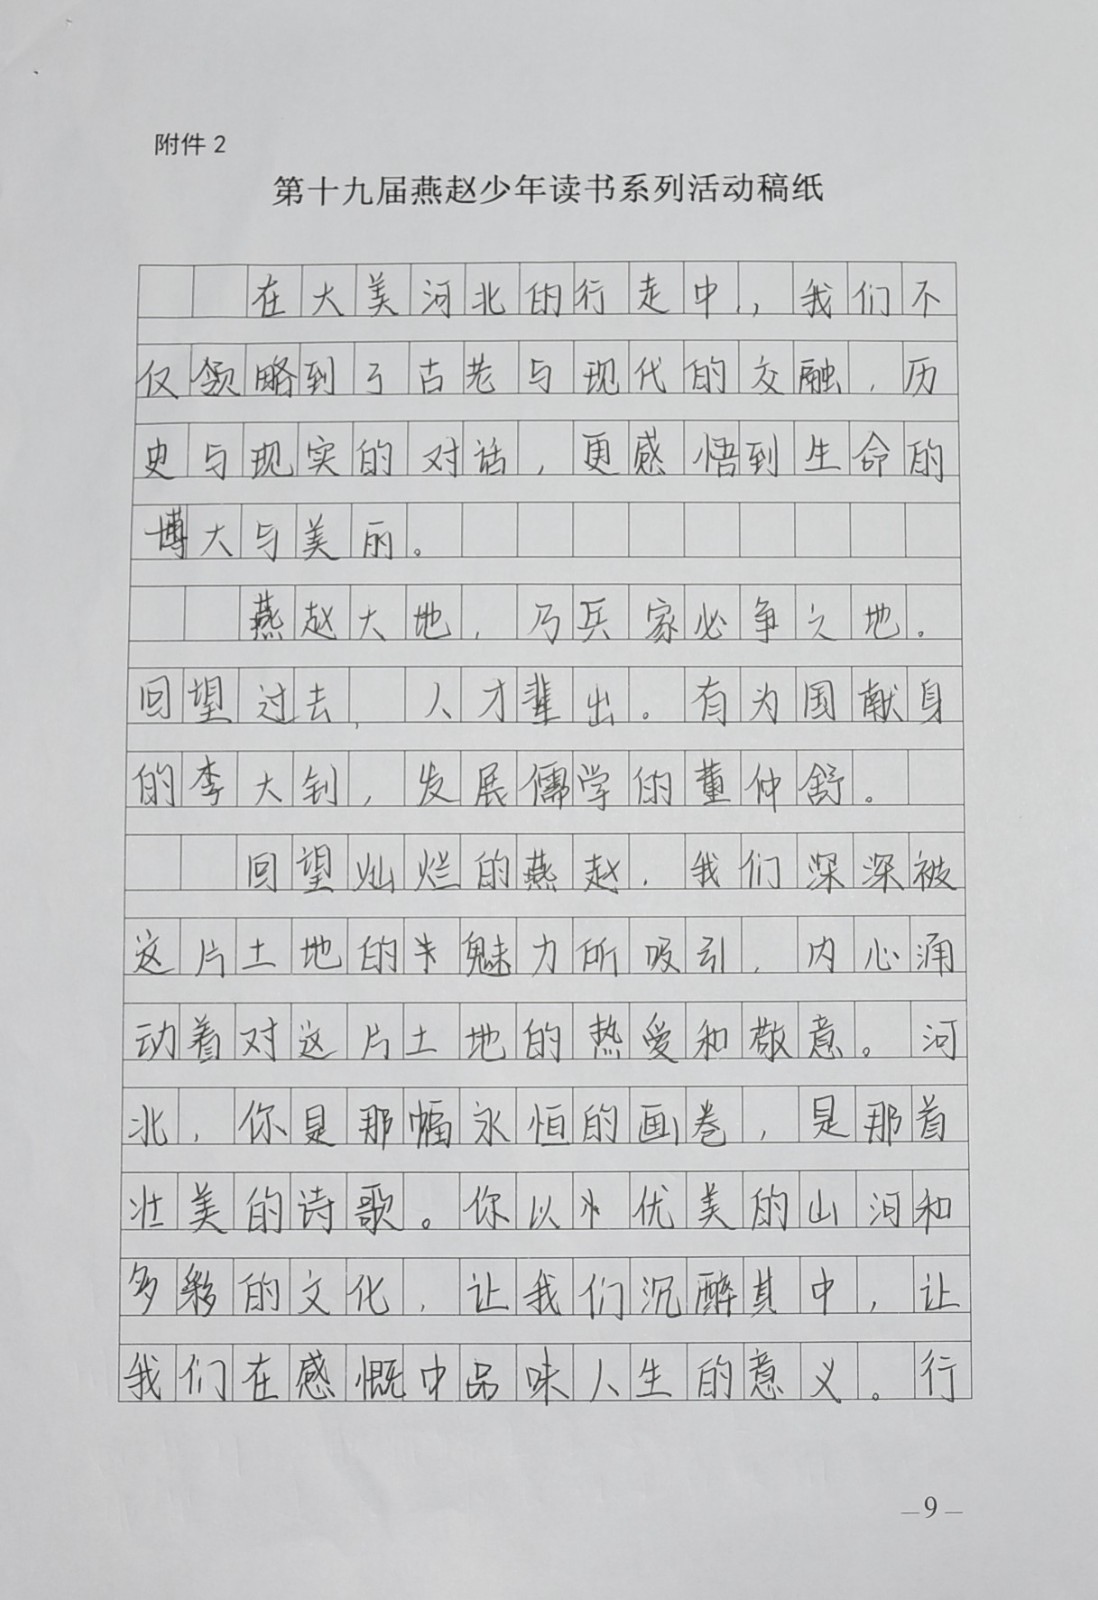 附件2
第十九届燕赵少年读书系列活动稿纸
在大美河北的行走中，我们不
仅领略到了古老与现代的交融，历
史与现实的对话，更感悟到生命的
博大与美丽。
燕赵大地，乃兵家必争之地。
回望过去，人才辈出。有为国献身
的李大钊，发展儒学的董仲舒。
回望灿烂的燕赵，我们深深被
这片土地的魅力所吸引，内心涌
动着对这片土地的热爱和敬意。河
北，你是那幅永恒的画卷，是那首
壮美的诗歌。你以优美的山河和
多彩的文化，让我们沉醉其中，让
我们在感慨中品味人生的意义。行
—9—